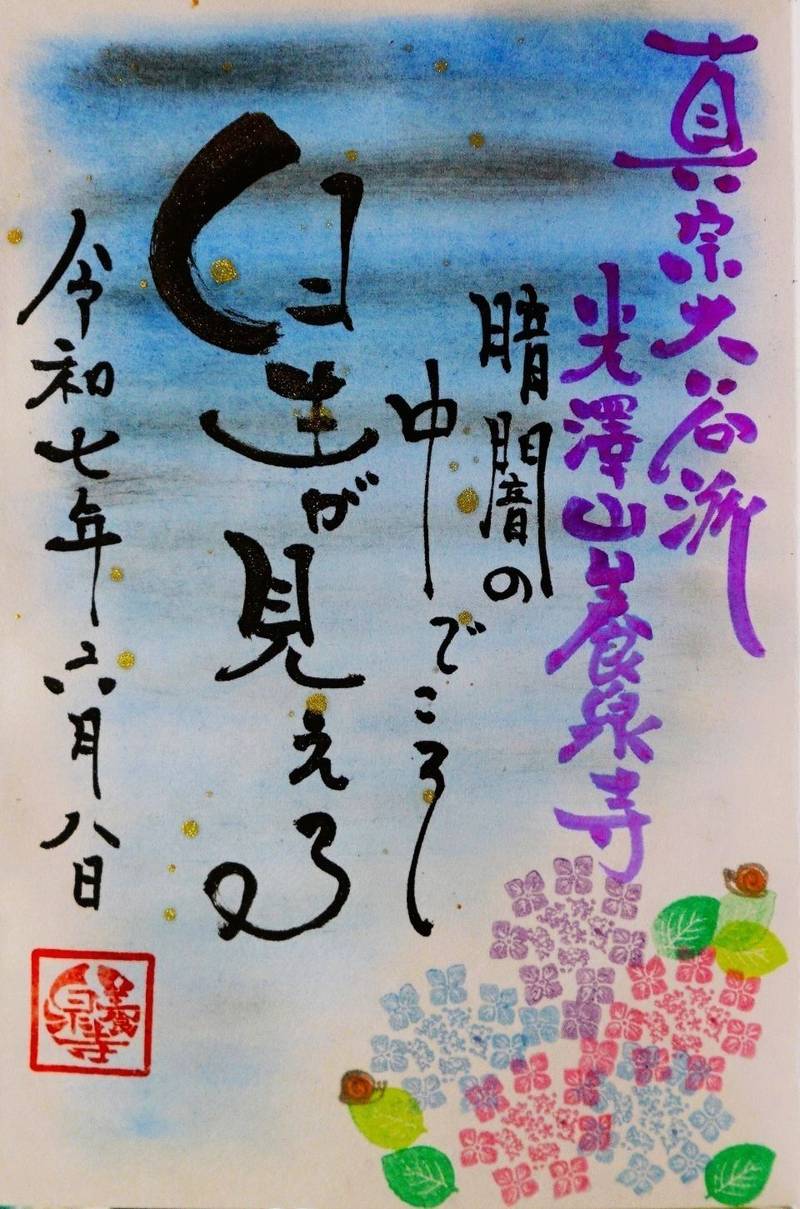 真宗大谷派
光澤山養泉寺
暗闇の
中でこそ
星が見える
令和七年六月八日
養泉寺